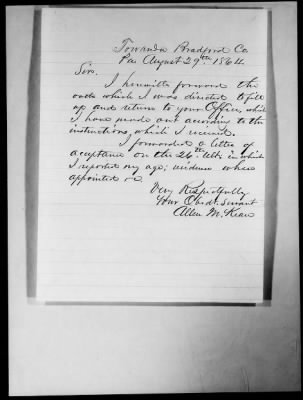 Towanda Bradford Co
Pa. August 29th 1864.
Sir.
I herewith forward the
oath which I was directed to fill
up and return to your Office, which
I have made out according to the
instructions which I received.
I forwarded a letter of
acceptance on the 26th ult: in which
I reported my age; residence when
appointed &c.
Very Respectfully
Your Obedt. Servant
Allen M.